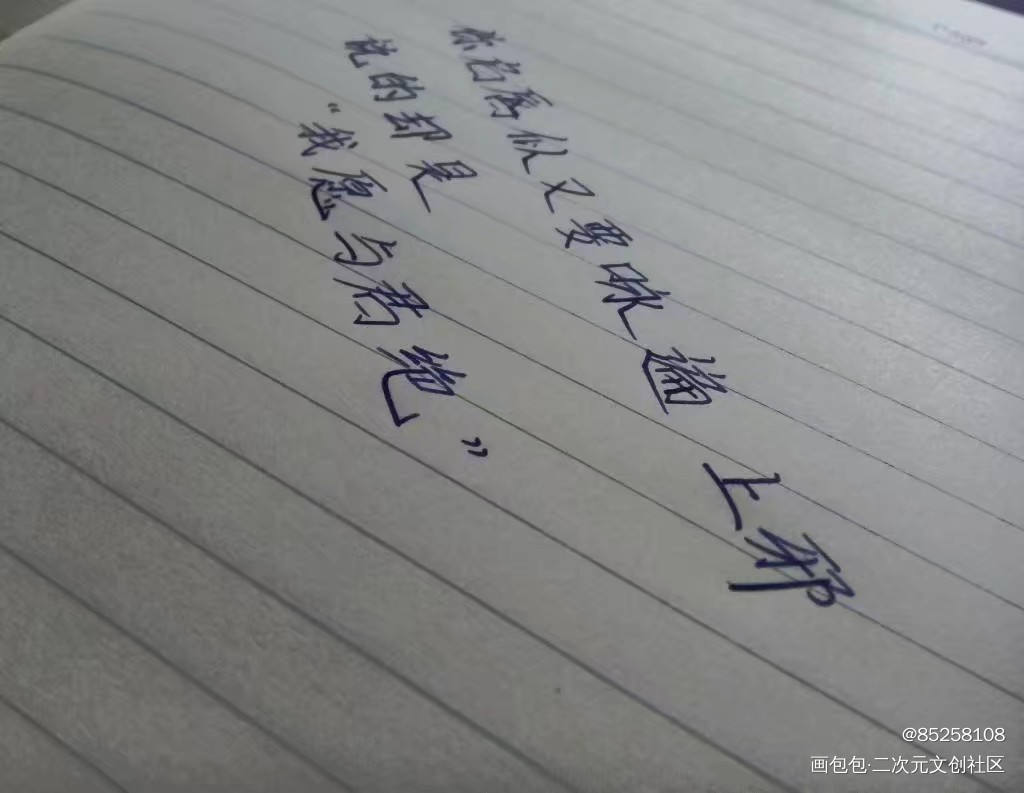 你似又要咏遍 上邪
说的却是
“我愿与君绝”
@85258108
画包包·二次元文创社区